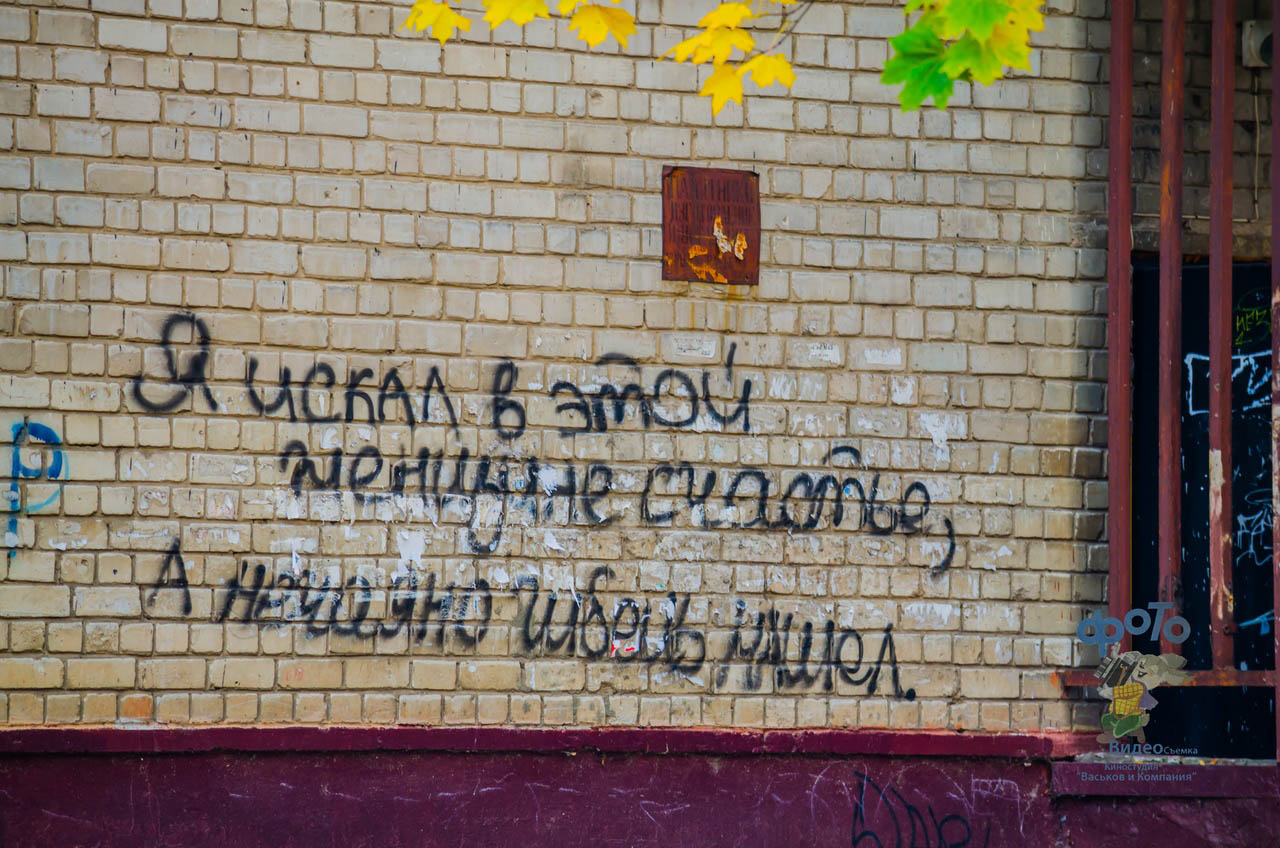 Я искал в этой
женщине счастье,
А нечаяно гибель нашел.
Р
фото
ВидеоСъемка
Киностудия
"Васьков и Компания"